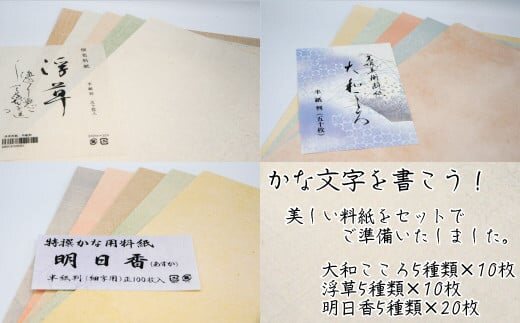 仮名料紙
浮草
半紙判 五十枚
大和こころ
半紙判(五十枚)
特撰かな用料紙
明日香(あすか)
半紙判(細字用)正100枚入
かな文字を書こう!
美しい料紙をセットで
ご準備いたしました。
大和こころ5種類×10枚
浮草5種類×10枚
明日香5種類×20枚